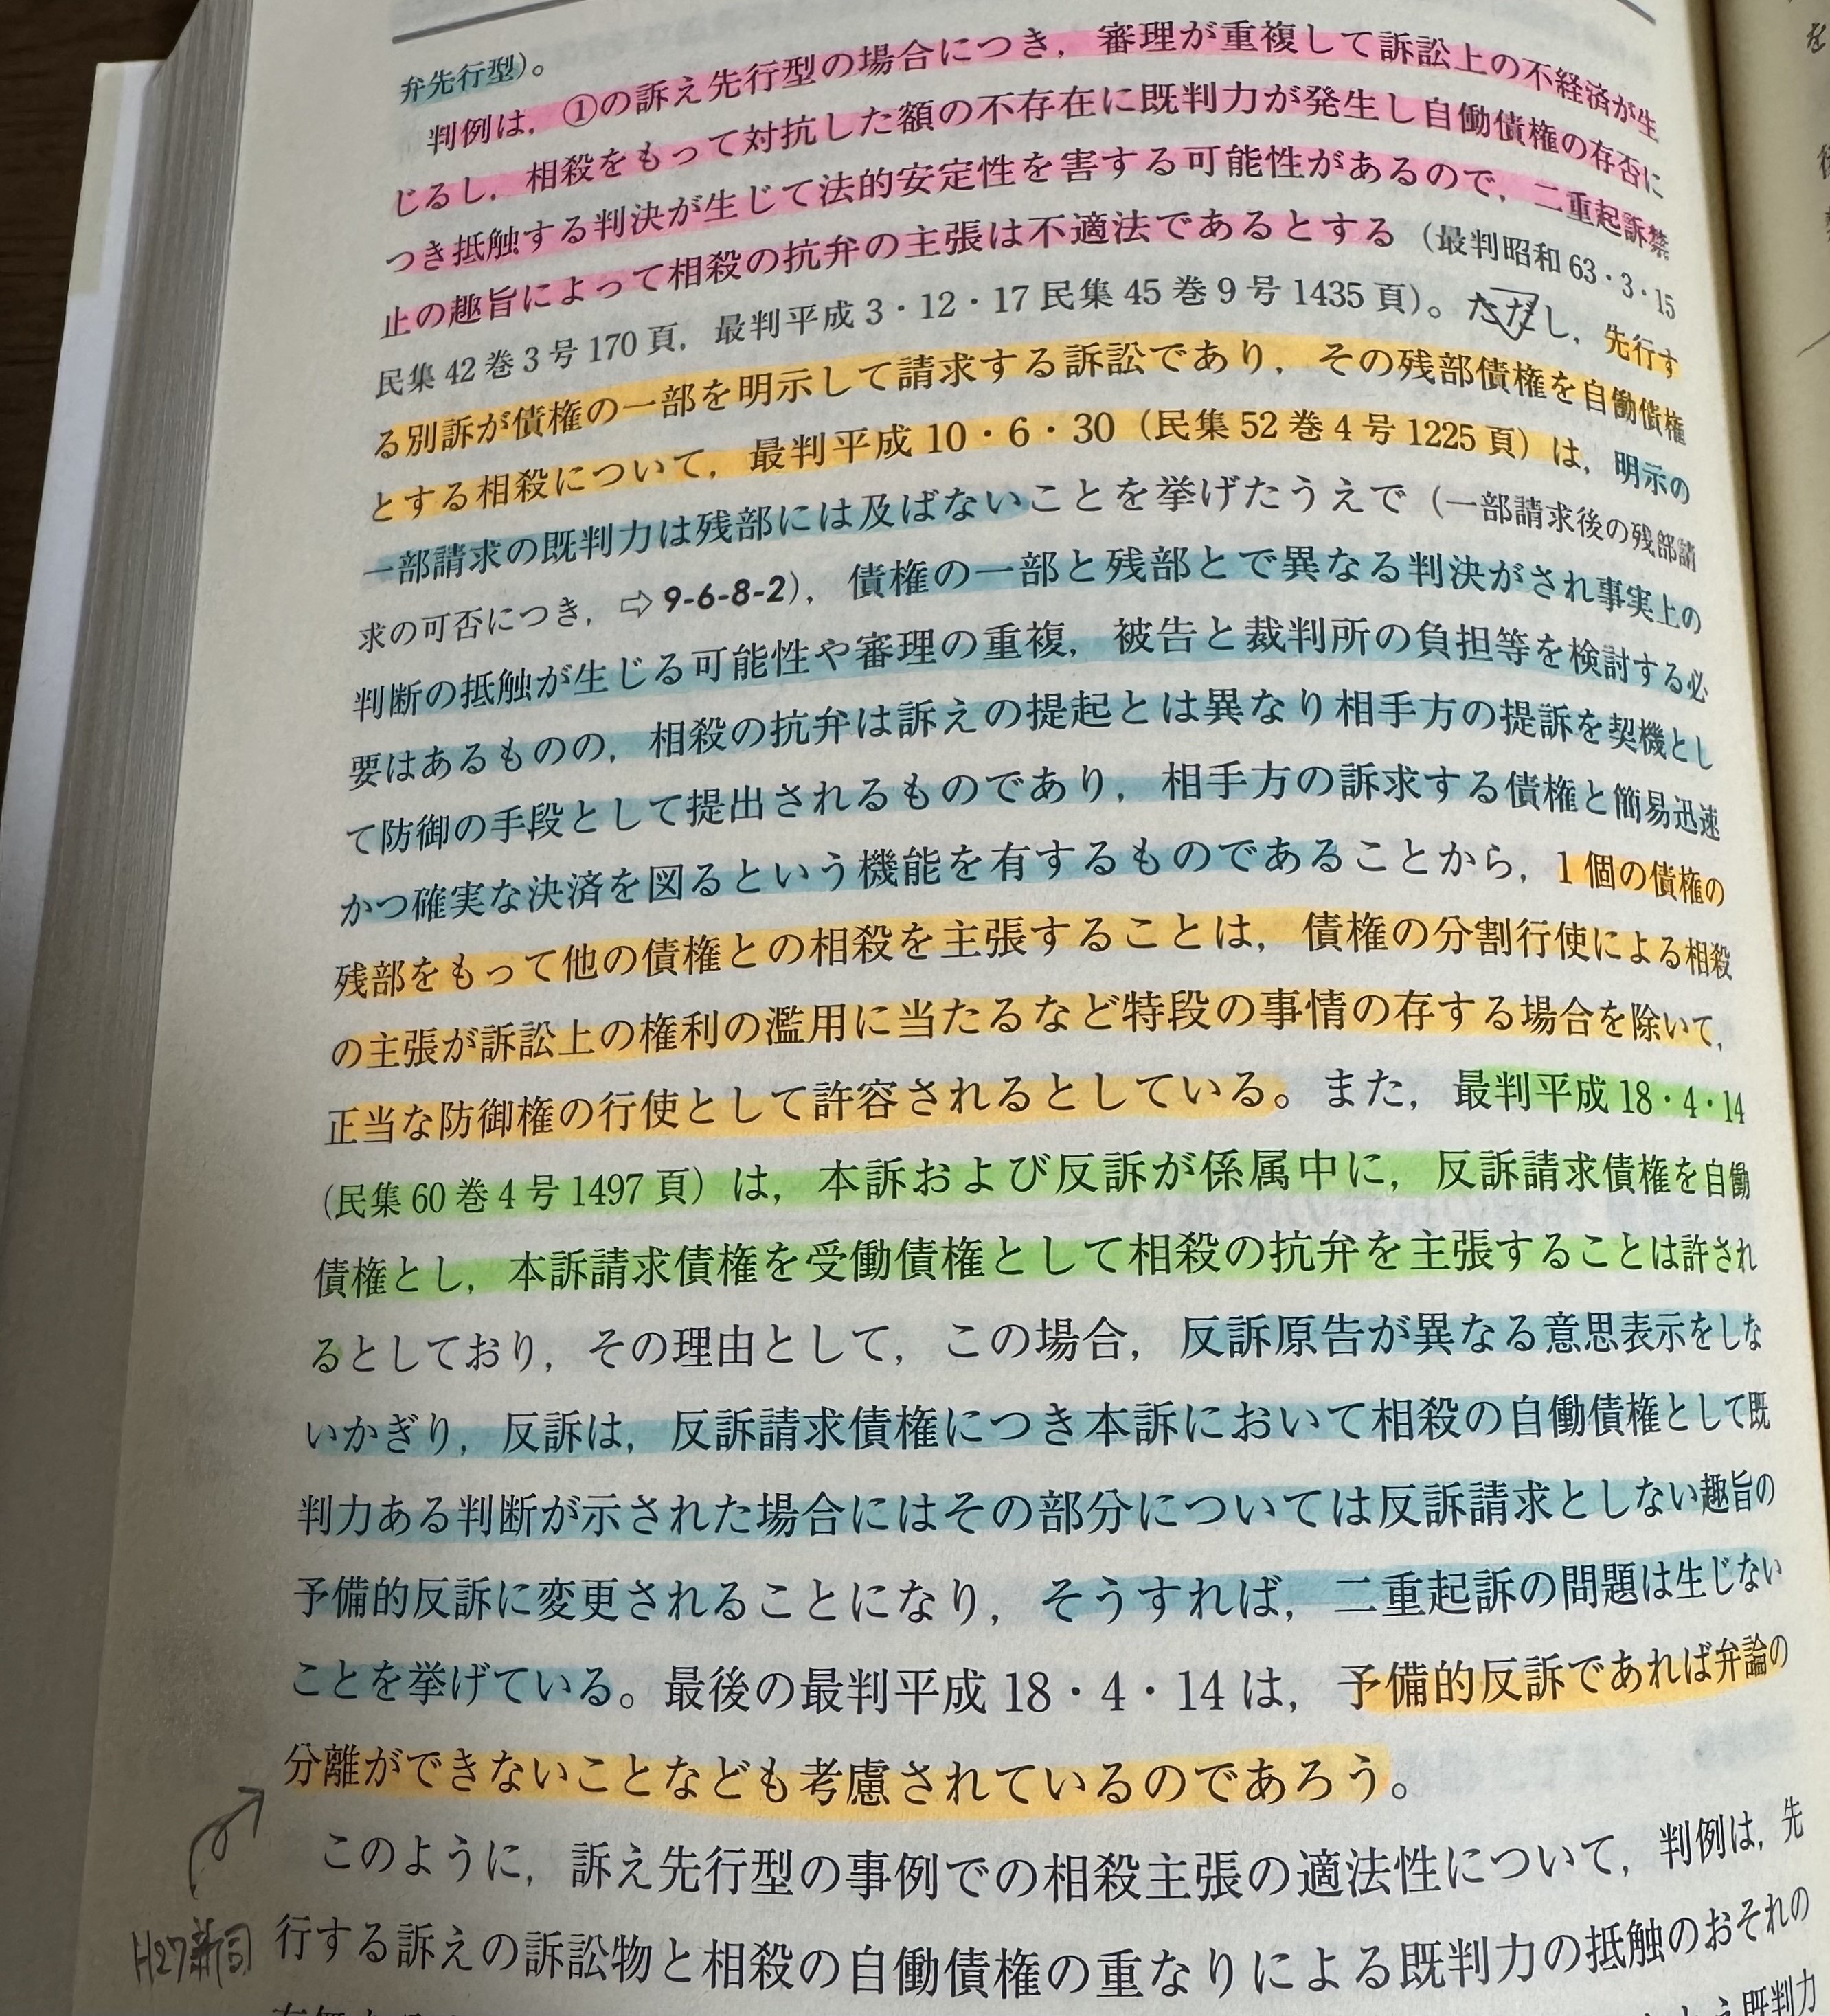 弁先行型)。
判例は，①の訴え先行型の場合につき，審理が重複して訴訟上の不経済が生
じるし，相殺をもって対抗した額の不存在に既判力が発生し自働債権の存否に
つき抵触する判決が生じて法的安定性を害する可能性があるので，二重起訴禁
止の趣旨によって相殺の抗弁の主張は不適法であるとする（最判昭和 63・3・15
民集 42 巻 3 号 170 頁，最判平成 3・12・17 民集 45 巻 9 号 1435 頁）。ただし，先行す
る別訴が債権の一部を明示して請求する訴訟であり，その残部債権を自働債権
とする相殺について，最判平成 10・6・30（民集 52 巻 4 号 1225 頁）は，明示の
一部請求の既判力は残部には及ばないことを挙げたうえで（一部請求後の残部請
求の可否につき，⇨ 9-6-8-2），債権の一部と残部とで異なる判決がされ事実上の
判断の抵触が生じる可能性や審理の重複，被告と裁判所の負担等を検討する必
要はあるものの，相殺の抗弁は訴えの提起とは異なり相手方の提訴を契機とし
て防御の手段として提出されるものであり，相手方の訴求する債権と簡易迅速
かつ確実な決済を図るという機能を有するものであることから，1 個の債権の
残部をもって他の債権との相殺を主張することは，債権の分割行使による相殺
の主張が訴訟上の権利の濫用に当たるなど特段の事情の存する場合を除いて，
正当な防御権の行使として許容されるとしている。また，最判平成 18・4・14
（民集 60 巻 4 号 1497 頁）は，本訴および反訴が係属中に，反訴請求債権を自働
債権とし，本訴請求債権を受働債権として相殺の抗弁を主張することは許され
るとしており，その理由として，この場合，反訴原告が異なる意思表示をしな
いかぎり，反訴は，反訴請求債権につき本訴において相殺の自働債権として既
判力ある判断が示された場合にはその部分については反訴請求としない趣旨の
予備的反訴に変更されることになり，そうすれば，二重起訴の問題は生じない
ことを挙げている。最後の最判平成 18・4・14 は，予備的反訴であれば弁論の
分離ができないことなども考慮されているのであろう。
このように，訴え先行型の事例での相殺主張の適法性について，判例は，先
H27新司
行する訴えの訴訟物と相殺の自働債権の重なりによる既判力の抵触のおそれの